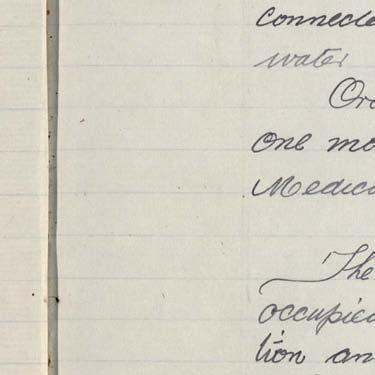 connecte
water
Or
one mo
Medica
The
occupied
tion an